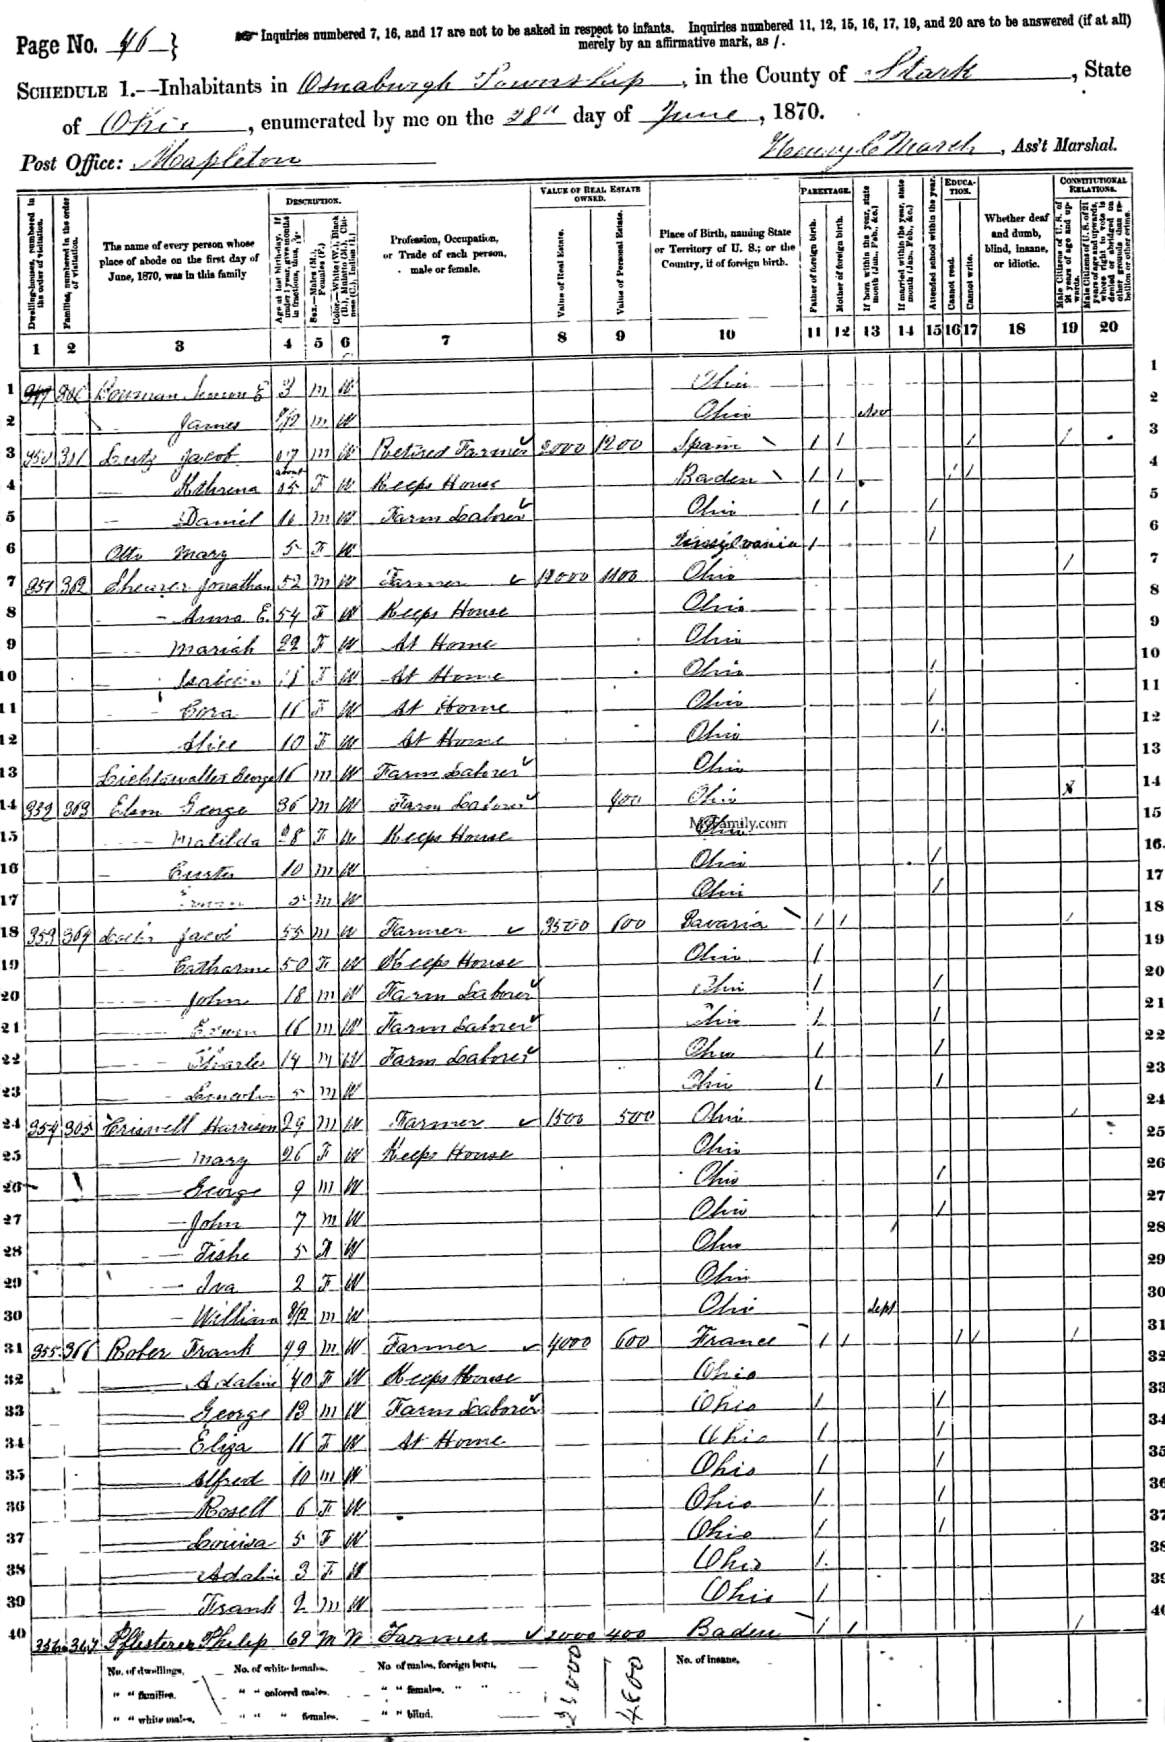 Page No. 46 }
Inquiries numbered 7, 16, and 17 are not to be asked in respect to infants. Inquiries numbered 11, 12, 15, 16, 17, 19, and 20 are to be answered (if at all)
merely by an affirmative mark, as /.
SCHEDULE 1.--Inhabitants in Osnaburgh Township, in the County of Stark, State
of Ohio, enumerated by me on the 28th day of June, 1870.
Post Office: Mapleton
Henry C March, Ass't Marshal.
Dwelling-houses, numbered in the order of visitation.
Families, numbered in the order of visitation.
The name of every person whose place of abode on the first day of June, 1870, was in this family
DESCRIPTION.
Age at last birth-day. If under 1 year, give months in fractions, thus,
Sex.—Males (M.), Females (F.)
Color.—White (W.), Black (B.), Mulatto (M.), Chinese (C.), Indian (I.)
Profession, Occupation, or Trade of each person, male or female.
VALUE OF REAL ESTATE OWNED.
Value of Real Estate.
Value of Personal Estate.
Place of Birth, naming State or Territory of U. S.; or the Country, if of foreign birth.
PARENTAGE.
Father of foreign birth.
Mother of foreign birth.
If born within the year, state month (Jan., Feb., &c.)
If married within the year, state month (Jan., Feb., &c.)
Attended school within the year.
EDUCATION.
Cannot read.
Cannot write.
Whether deaf and dumb, blind, insane, or idiotic.
CONSTITUTIONAL RELATIONS.
Male Citizens of U. S. of 21 years of age and upwards.
Male Citizens of U. S. of 21 years of age and upwards, whose right to vote is denied or abridged on other grounds than rebellion or other crime.
1 2 3 4 5 6 7 8 9 10 11 12 13 14 15 16 17 18 19 20
1 E 3 m W Ohio 1
2 James m W Ohio 2
3 350 Jacob m W Retired Farmer 1200 Spain / / / / 3
4 Kthrena about F W Keeps House Baden / / / / 4
5 Daniel m W Farm Laborer Ohio / / / 5
6 Otto Mary 5 F W / / 6
7 351 362 Shearer Jonathan 52 m W Farmer 12000 1100 Ohio / 7
8 Anna E. 54 F W Keeps House Ohio 8
9 Mariah 22 F W At Home Ohio 9
10 F W At Home Ohio / 10
11 Cora F W At Home Ohio / 11
12 Alice 10 F W At Home Ohio / 12
13 George 16 m W Farm Laborer Ohio 13
14 352 363 Elson George 36 m W Farm Laborer 400 Ohio 14
15 Matilda 28 F W Keeps House Ohio 15
MyFamily.com
16 10 m W Ohio / 16
17 m W Ohio / 17
18 353 364 Jacob 55 m W Farmer 3500 600 Bavaria / / / 18
19 Catharine 50 F W Keeps House Ohio / 19
20 John 18 m W Farm Laborer Ohio / / 20
21 16 m W Farm Laborer Ohio / / 21
22 Charles 14 m W Farm Laborer Ohio / / 22
23 Lincoln 5 m W Ohio / / 23
24 354 365 Criswell Harrison 29 m W Farmer 1500 500 Ohio / 24
25 Mary 26 F W Keeps House Ohio 25
26 George 9 m W Ohio / 26
27 John 7 m W Ohio / 27
28 5 F W Ohio 28
29 Iva 2 F W Ohio 29
30 William m W Ohio Sept 30
31 355 366 Rober Frank 49 m W Farmer 4000 600 France / / / / / 31
32 Adaline 40 F W Keeps House Ohio 32
33 George 13 m W Farm Laborer Ohio / / 33
34 Eliza 11 F W At Home Ohio / / 34
35 Alfred 10 m W Ohio / / 35
36 Rosell 6 F W Ohio / / 36
37 Louisa 5 F W Ohio / / 37
38 Adaline 3 F W Ohio / 38
39 Frank 2 m W Ohio / 39
40 356 367 Pflesterer Philip 69 M W Farmer 2000 400 Baden / / / 40
No. of dwellings, No. of white females, No. of males, foreign born, No. of insane,
" " families. " " colored males. " " females, " "
" " white males, " " " females. " " blind.
4800